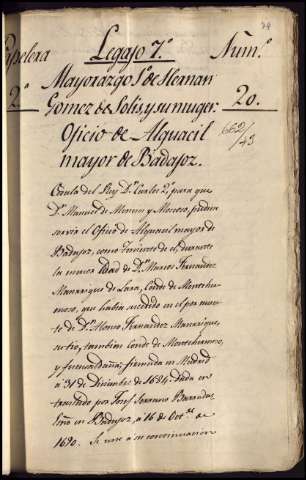 Papelera Legajo 7.º Núm.º
2.ª Mayorazgo 1.º de Hernan 20.
Gomez de Solis, y su muger.
Oficio de Alguacil
mayor de Badajoz.
669/43
Cedula del Rey D.n Carlos 2.º para que
D.n Manuel de Moscoso, pudiera
servir el Oficio de Alguacil mayor de
Badajoz, como Teniente de el, durante
la menor edad de D.n Marcos Fernandez
Manrique de Lara, Conde de Montehermoso,
que havia sucedido en el por muerte
de D.n Alonso Fernandez Manrique,
su tio, tambien Conde de Montehermoso,
y fuensaldaña; firmada en Madrid
à 31 de Diciembre de 1684: dada en
trasladado por Josef Serrano
en Badajoz, à 16 de Oct.re de
1690. Se une à su continuacion